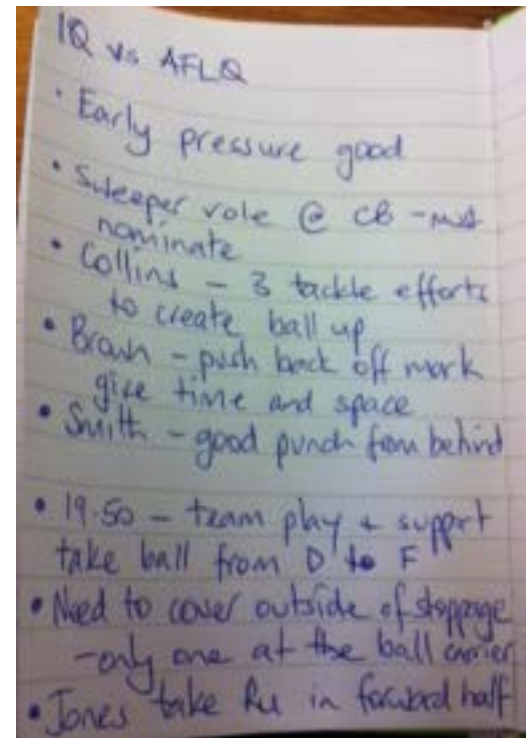 IQ vs AFLQ
• Early pressure good
• Sweeper role @ CB - must
nominate
• Collins - 3 tackle efforts
to create ball up
• Brown - push back off mark
give time and space
• Smith - good punch from behind
• 19.50 - team play + support
take ball from D to F
• Need to cover outside of stoppage
- only one at the ball carrier
• Jones take Ru in forward half